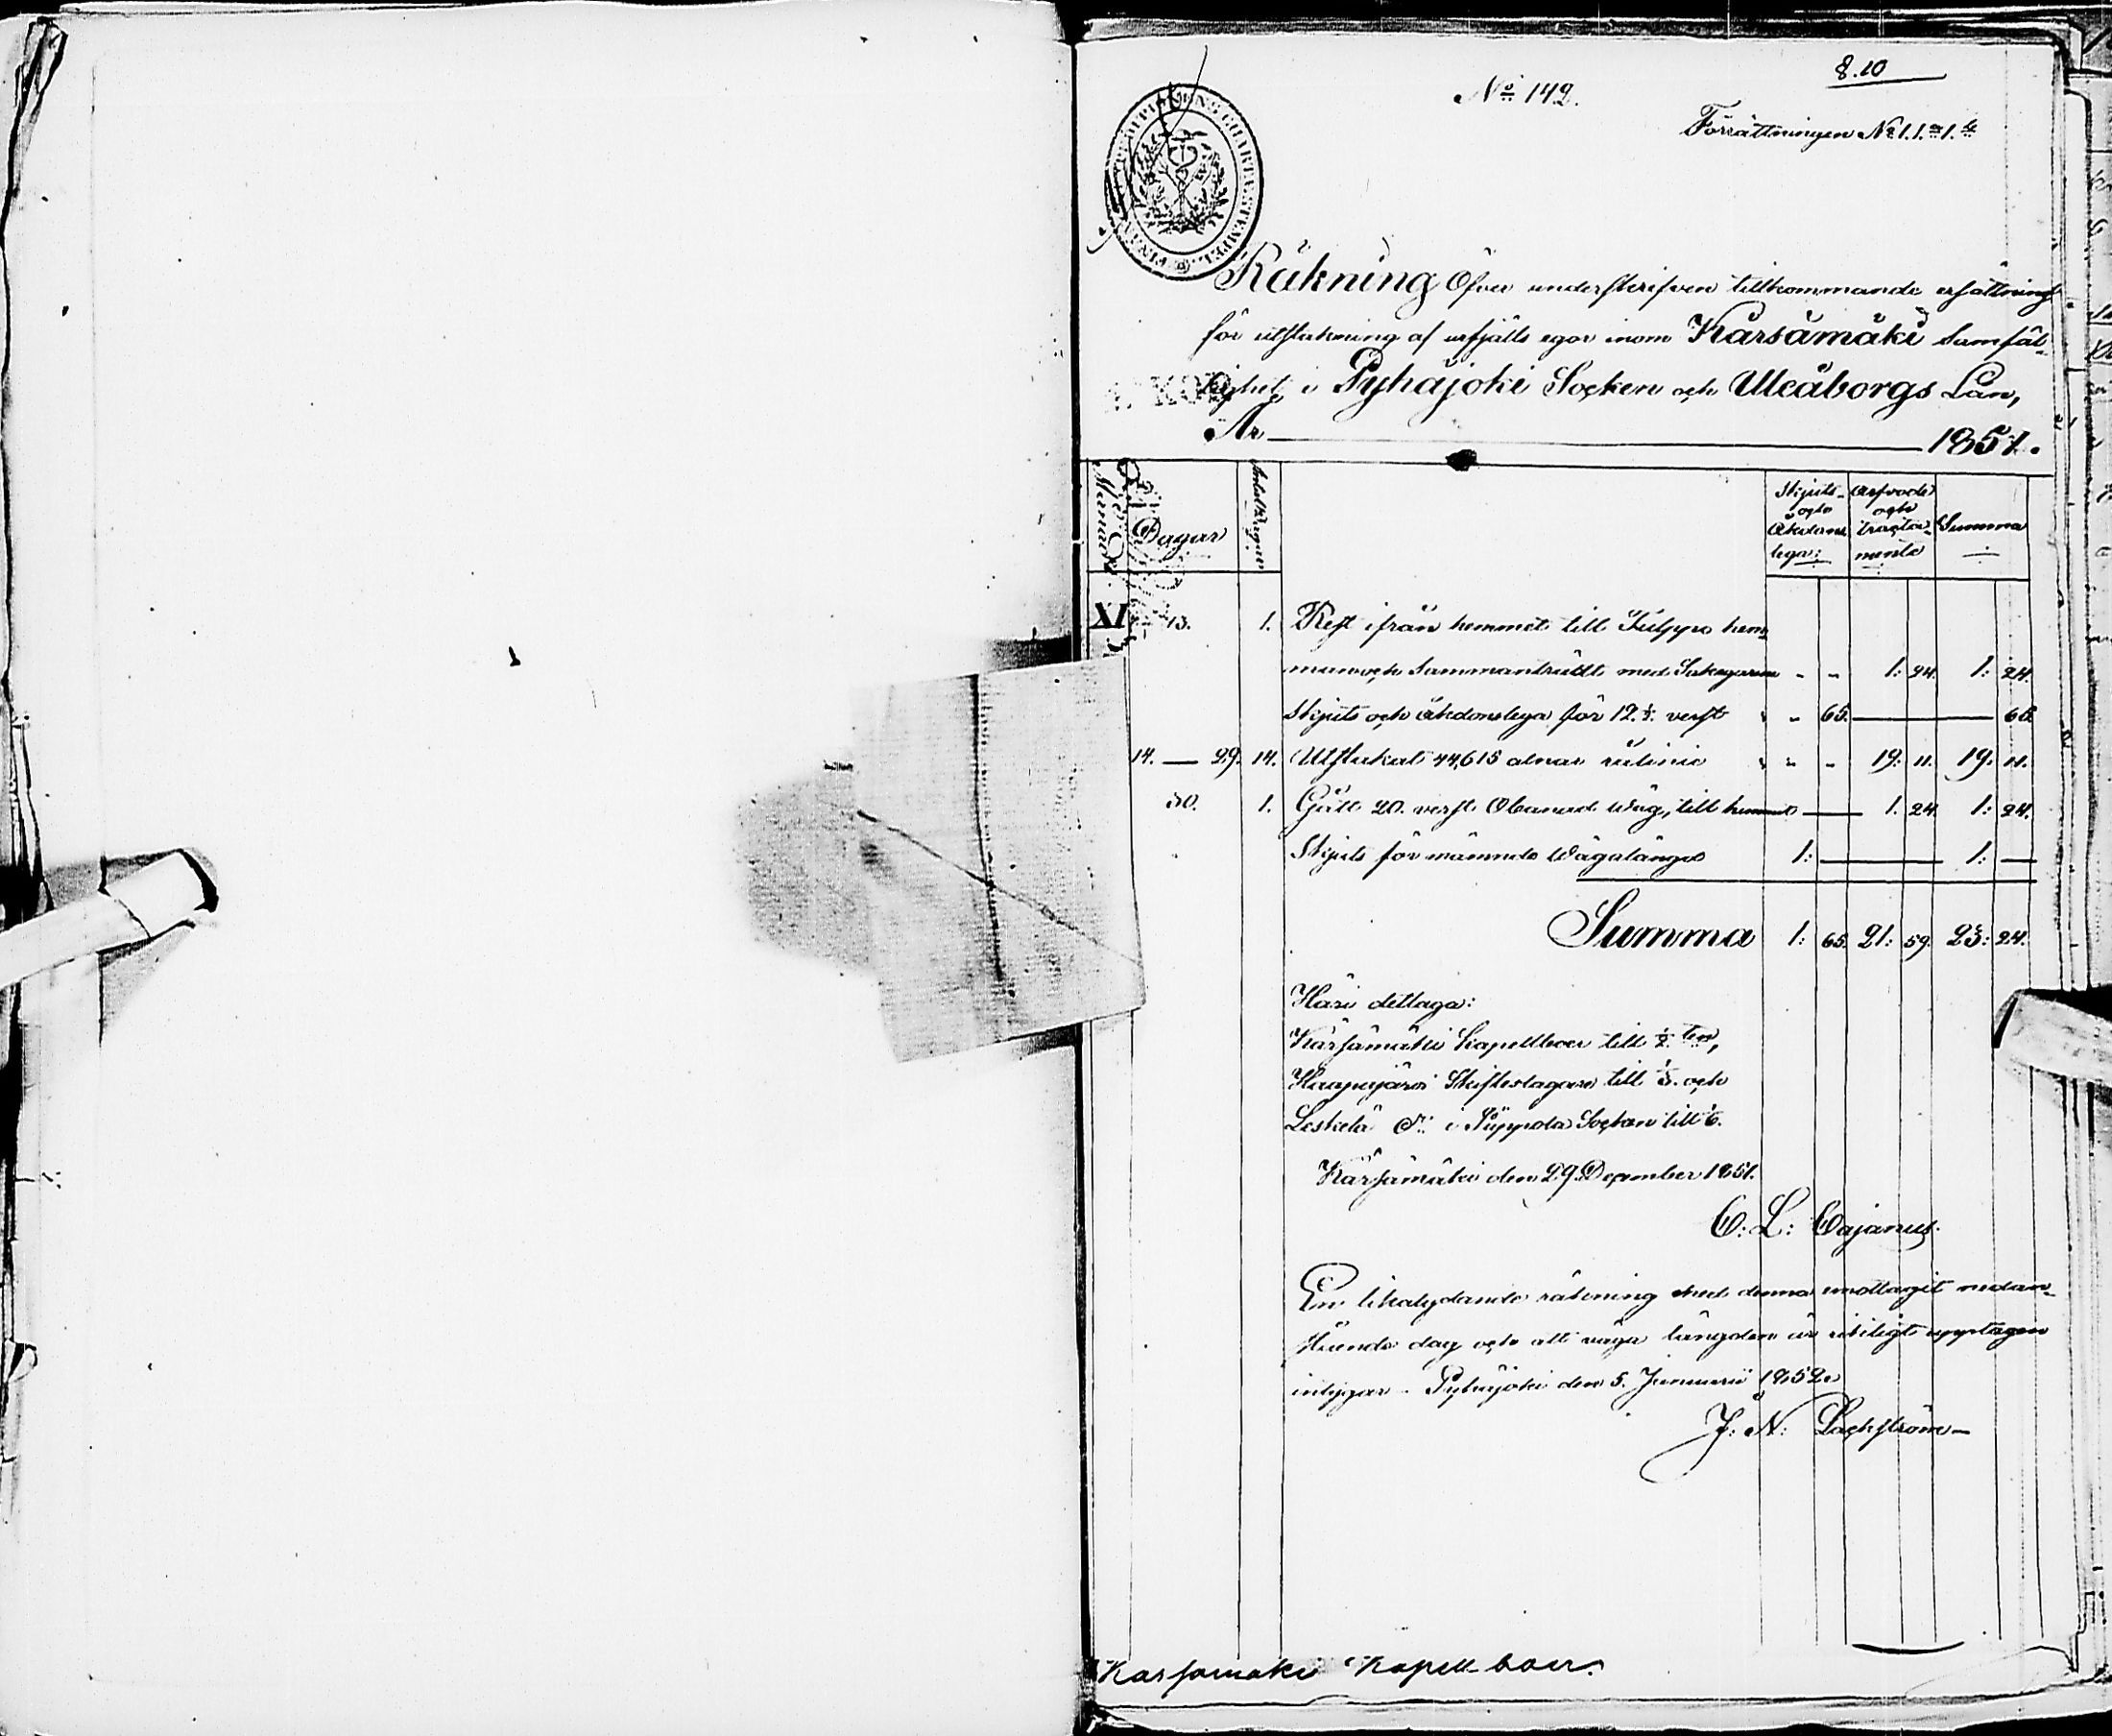 8.10
No 142.
Förrättningen No 1.1.a 1.b
Räkning Öfver underskrifven tillkommande ersättning
för utstakning af urfjälls egor inom Kärsämäki Samfäl-
lighet, i Pyhäjoki Socken och Uleåborgs Län,
År 1851.
Månad Dagar Antal Dagar Skjuts- och Åkdons lega: Arfvode och tracta- mente Summa
XI 13. 1. Rest ifrån hemmet till hem-
man och Sammanträdt med Sakegarene " " 1: 24. 1: 24.
Skjuts och åkdonslega för 12.½. verst " " 65. — 65.
14. — 29. 14. Utstakat 44,615 alnar rålinie " " " 19: 11. 19. 11.
30. 1. Gått 20. verst Obanad wäg, till hemmet — 1. 24. 1: 24.
Skjuts för nämnde Wägalängd 1: — 1: —
Summa 1: 65. 21: 59. 23: 24.
Häri deltaga:
Kärsämäki Kapellboer till ½ ten,
Haapajärvi Skifteslagare till ⅓. och
Leskelä Do i Piippola Socken till ⅙.
Kärsämäki den 29. December 1851.
C: L: Cajanus.
En likalydande räkning med denna emottagit nedan-
stående dag och att väga längden är riktigt upptagen
intygar. Pyhäjoki den 5. Januarii 1852.
J: N: Lackström
Karsamaki Kapellboer.